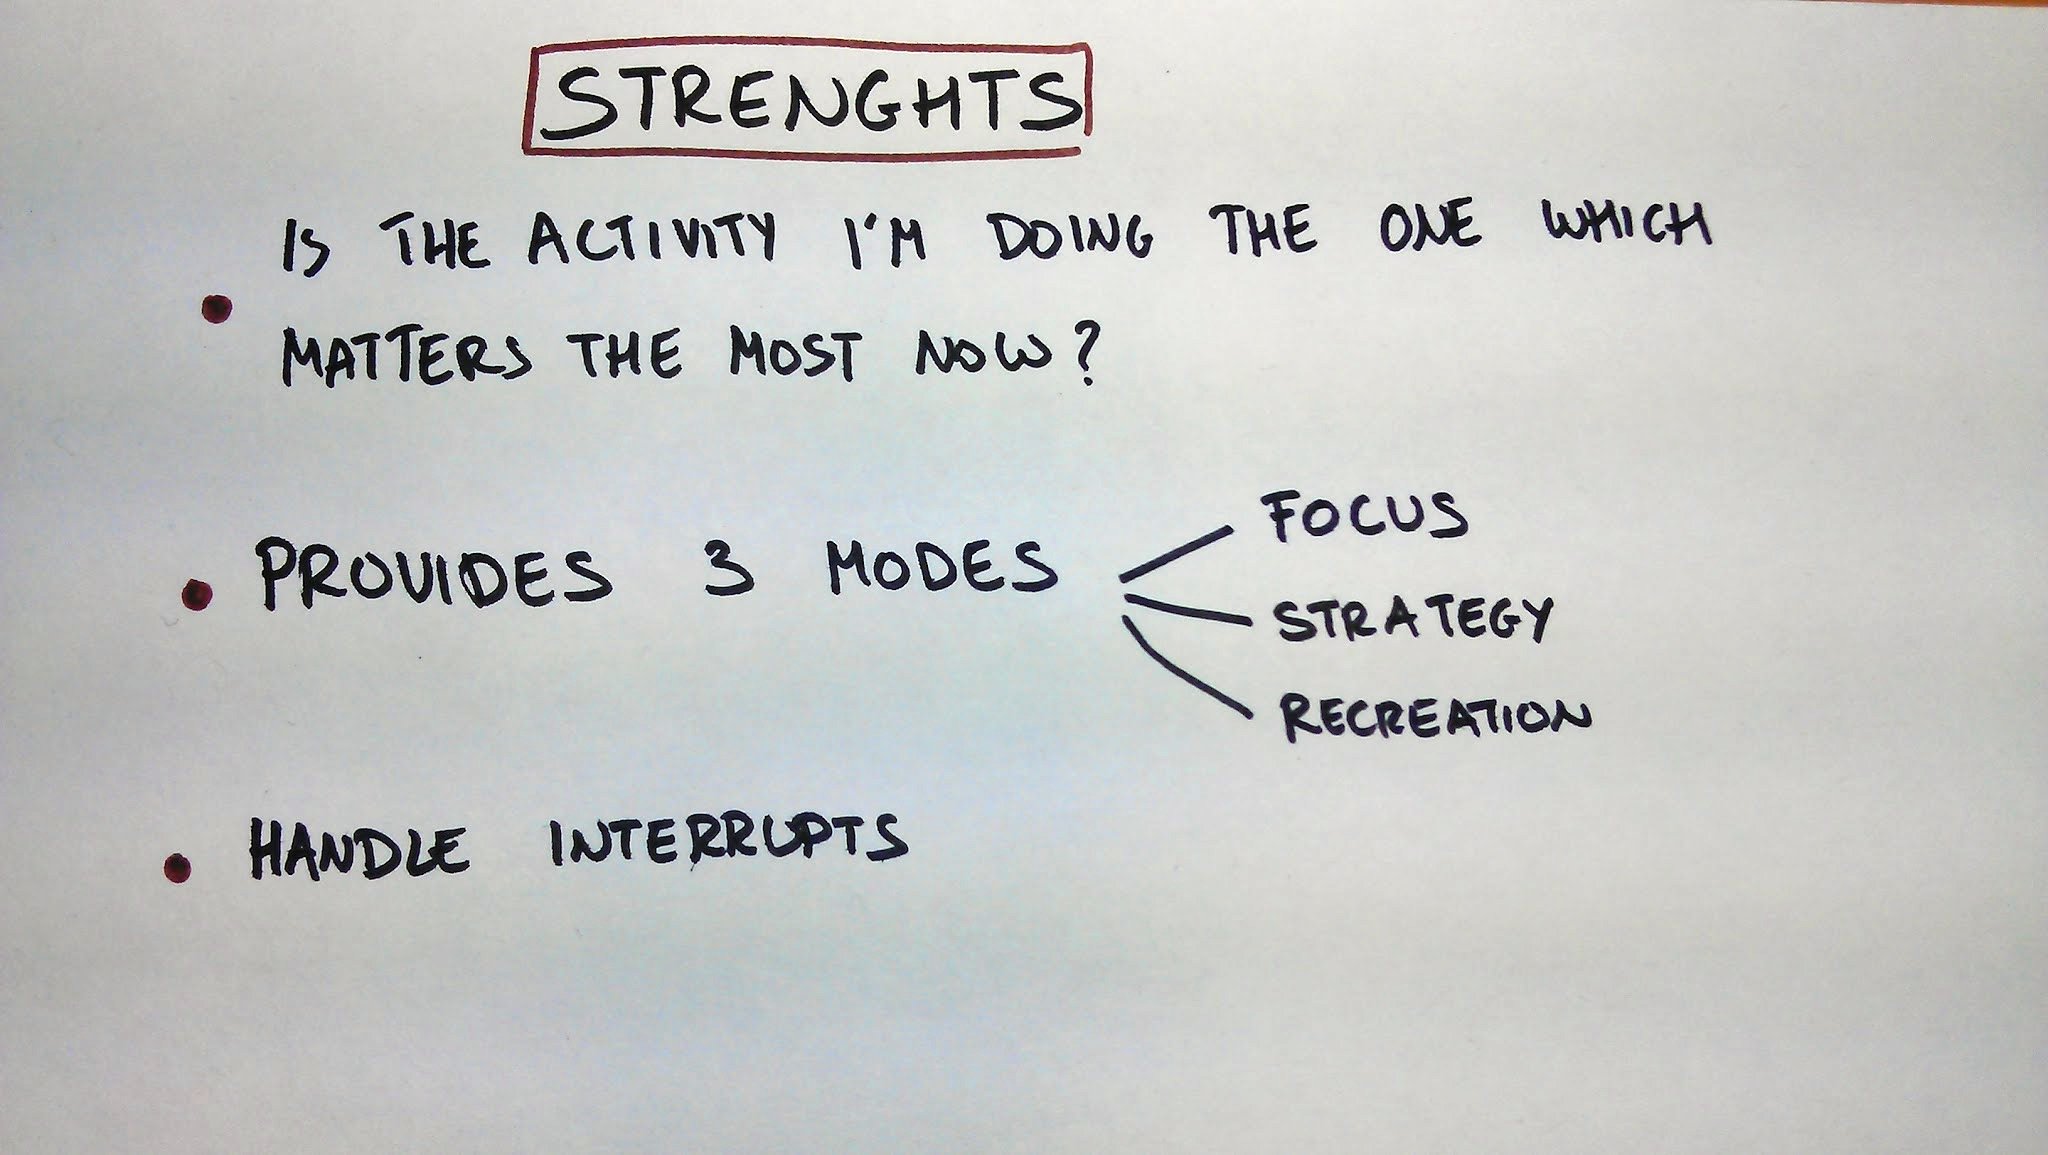 STRENGHTS
IS THE ACTIVITY I'M DOING THE ONE WHICH
MATTERS THE MOST NOW?
PROVIDES 3 MODES
FOCUS
STRATEGY
RECREATION
HANDLE INTERRUPTS